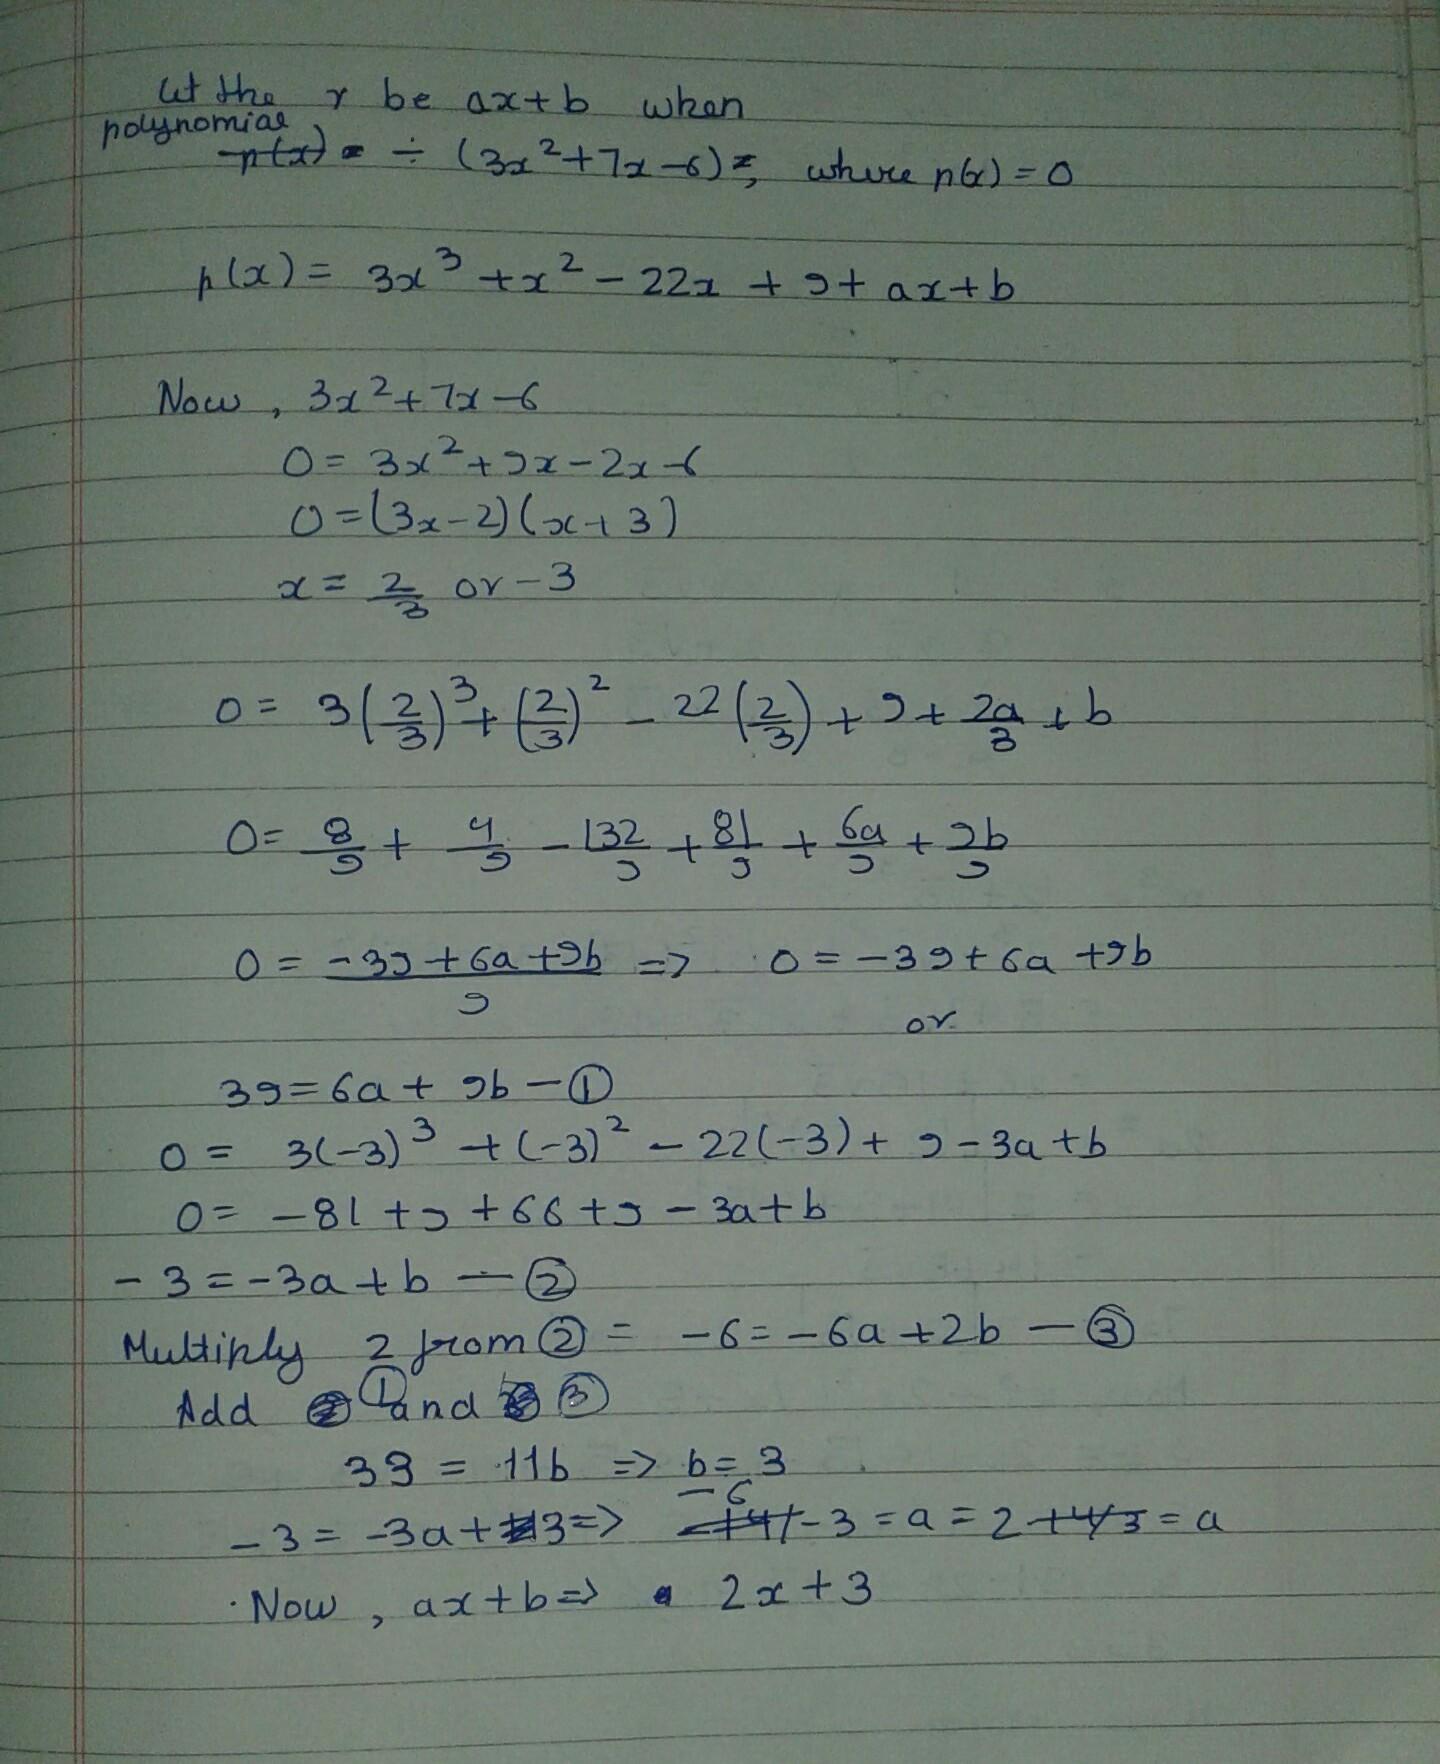 let the r be ax+b when
polynomial
p(x) = ÷ (3x²+7x-6)=, where p(x)=0
p(x) = 3x³ +x² - 22x + 9+ ax+b
Now, 3x²+7x-6
0= 3x²+9x-2x-6
0=(3x-2)(x+3)
x = 2/3 or -3
0= 3(2/3)³+(2/3)² - 22(2/3)+9+2a/3+b
0= 8/9 + 4/9 - 132/9 + 81/9 + 6a/9 + 9b/9
0 = -39+6a+9b/9 => 0=-39+6a+9b
or
39=6a+9b-①
0= 3(-3)³ +(-3)² - 22(-3)+ 9-3a+b
0= -81+9+66+9-3a+b
-3=-3a+b-②
Multiply 2 from② = -6=-6a+2b-③
Add ① and ③
33 = 11b => b=3
-3= -3a+3=> -6/-3=a=2+4/3=a
Now, ax+b=> 2x+3